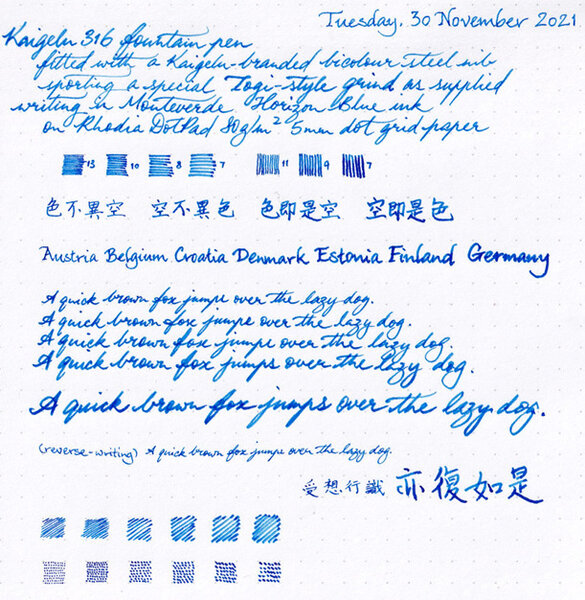 Tuesday, 30 November 2021
Kaigelu 316 fountain pen
fitted with a Kaigelu-branded bicolour steel nib
sporting a special Togi-style grind as supplied
writing in Monteverde Horizon Blue ink
on Rhodia DotPad 80g/m² 5mm dot grid paper
13 10 8 7 11 9 7
色不異空 空不異色 色即是空 空即是色
Austria Belgium Croatia Denmark Estonia Finland Germany
A quick brown fox jumps over the lazy dog.
A quick brown fox jumps over the lazy dog.
A quick brown fox jumps over the lazy dog.
A quick brown fox jumps over the lazy dog.
A quick brown fox jumps over the lazy dog.
(reverse-writing) A quick brown fox jumps over the lazy dog.
受想行識 亦復如是